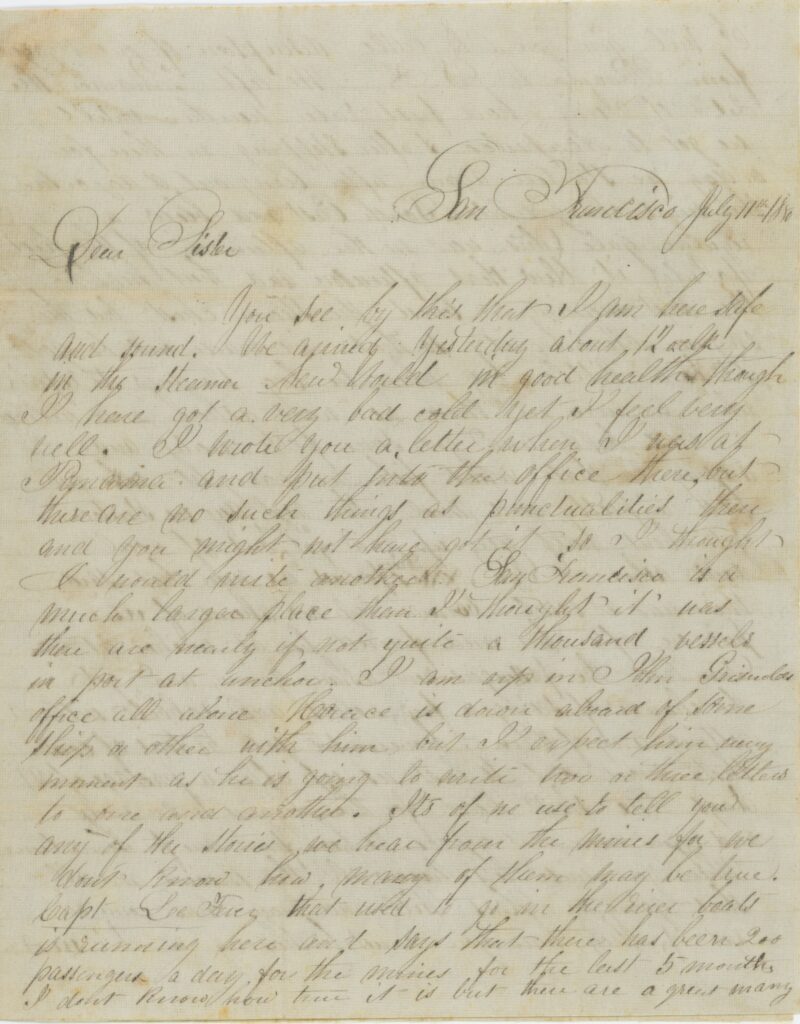 San Francisco July 11th 18
Dear Sister
You see by this that I am here safe
and sound. We arrived Yesterday about 12 oclk
in the steamer New World in good health though
I have got a very bad cold yet I feel very
well. I wrote you a letter when I was at
Panama and put into the office there, but
there are no such things as punctualities there
and you might not have got it so I thought
I would write another. San Francisco is a
much larger place than I thought it was
there are nearly if not quite a thousand vessels
in port at anchor. I am up in John
office all alone Horace is down aboard of some
ship or other with him but I expect him every
moment as he is going to write two or three letters
to one and another. Its of no use to tell you
any of the stories we hear from the mines for we
dont know how many of them may be true.
Capt that used to go in the river boats
is running here and says that there has been 200
passengers a day for the mines for the last 5 months
I dont know how true it is but there are a great many